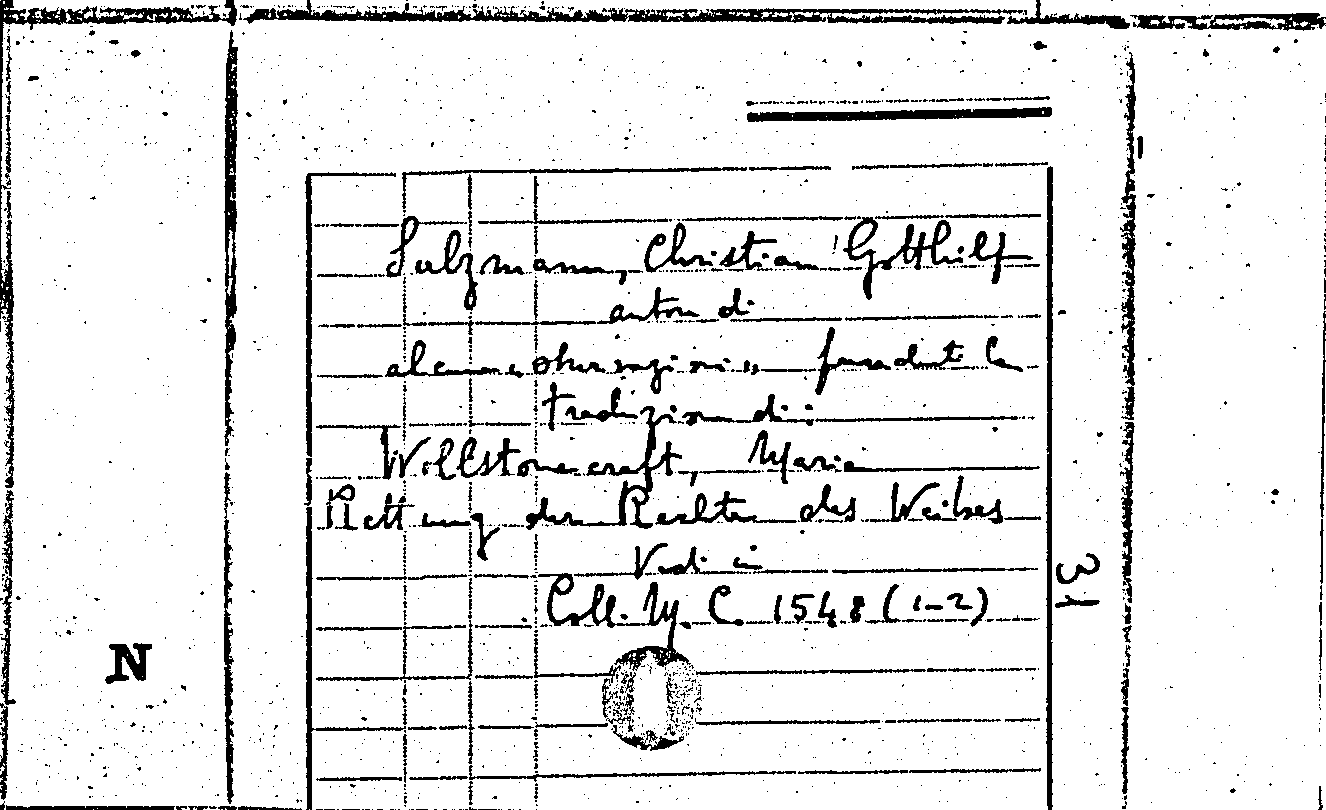 Salzmann, Christian Gotthilf
autore di
alcune osservazioni,, precedenti la
traduzione di:
Wollstonecraft, Maria
Rettung der Rechte des Weibes
Vedi in
Coll. M. C. 1548 (1-2)
31
N